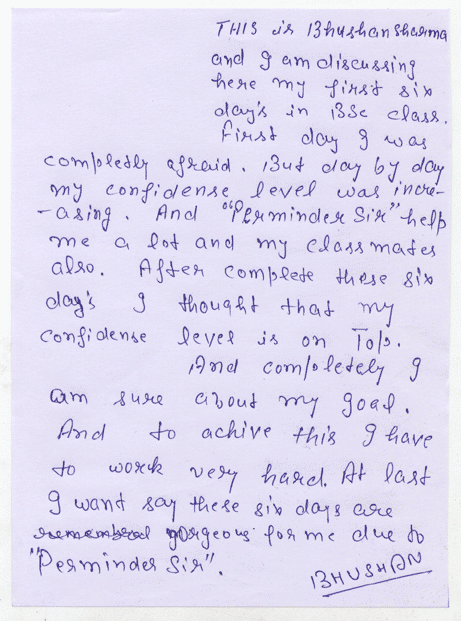 THIS is Bhushan sharma
and I am discussing
here my first six
day's in BSc class.
First day I was
completly afraid. But day by day
my confidense level was incre-
-asing. And "Perminder Sir" help
me a lot and my classmates
also. After complete these six
day's I thought that my
confidense level is on Top.
And completely I
am sure about my goal.
And to achive this I have
to work very hard. At last
I want say these six days are
gorgeous for me due to
"Perminder Sir".
BHUSHAN